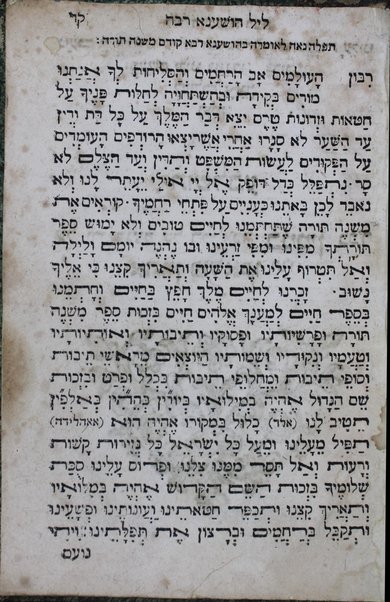 ליל הושענא רבה קי
תפלה נאה לאומרה בהושענא רבא קודם משנה תורה :
רבון הָעוֹלָמִים אַב הָרַחֲמִים וְהַסְלִיחוֹת לְךָ אֲנַחְנוּ
מוֹדִים בְּקִידָה וּבְהִשְׁתַּחֲוָיָה לְחַלּוֹת פָּנֶיךָ עַל
חטאות וּזְדוֹנוֹת טֶרֶם יֵצֵא דְבַר הַמֶּלֶךְ עַל כָּל דַּת וָדִין
עַד הַשַּׁעַר לֹא סָגְרוּ אַחֲרֵי אֲשֶׁר יָצְאוּ הָרוֹדְפִים הָעוֹמְדִים
עַל הַפְּקוּדִים לַעֲשׂוֹת הַמִּשְׁפָּט וְהַדִּין וְעַד הַצֵּלֶם לֹא
סָר נִתְפַּלֵּל כְּדַל דּוֹפֵק אֶל יְיָ אוּלַי יֵעָתֵר לָנוּ וְלֹא
נֹאבֵד לָכֵן בָּאתָנוּ כַּעֲנִיִּים עַל פִּתְחֵי רַחֲמֶיךָ קוֹרְאִים אֶת
מִשְׁנֵה תוֹרָה שֶׁתְּחָתְמֵנוּ לְחַיִּים טוֹבִים וְלֹא יָמוּשׁ סֵפֶר
תּוֹרָתְךָ מִפִּינוּ וּמִפִּי זַרְעֵינוּ וּבוֹ נֶהְגֶּה יוֹמָם וָלַיְלָה
וְאַל תִּטְרוֹף עָלֵינוּ אֶת הַשָּׁעָה וְתַאֲרִיךְ קִצֵּנוּ כִּי אֵלֶיךָ
נָשׁוּב׃ זָכְרֵנוּ לְחַיִּים מֶלֶךְ חָפֵץ בַּחַיִּים וְחָתְמֵנוּ
בְּסֵפֶר חַיִּים לְמַעַנְךָ אֱלֹהִים חַיִּים בִּזְכוּת סֵפֶר מִשְׁנֵה
תּוֹרָה וּפָרְשִׁיּוֹתָיו וּפְסוּקָיו וְתֵיבוֹתָיו וְאוֹתִיּוֹתָיו
וְטַעֲמָיו וְנִקּוּדָיו וְשֵׁמוֹתָיו הַיּוֹצְאִים מֵרָאשֵׁי תֵיבוֹת
וְסוֹפֵי תֵיבוֹת וּמֵחִלּוּפֵי תֵיבוֹת בִּכְלָל וּפְרָט וּבִזְכוּת
שֵׁם הַגָּדוֹל אֶהְיֶה בְּמִילוּאָיו בְּיוּדִין כְּהֵדִין כְּאַלְפִין
תֵּטִיב לָנוּ (אלד) כָּלוּל בִּמְקוֹרוֹ אֶהְיֶה הוּא (אאההלידה)
תַּפִּיל מֵעָלֵינוּ וּמֵעַל כָּל יִשְׂרָאֵל כָּל גְּזֵירוֹת קָשׁוֹת
וְרָעוֹת וְאַל תָּסֵר מִמֶּנּוּ צִלֵּנוּ וּפְרוֹס עָלֵינוּ סֻכַּת
שְׁלוֹמֶיךָ בִּזְכוּת הַשֵּׁם הַקָּדוֹשׁ אֶהְיֶה בְּמִלּוּאָיו
וְתַאֲרִיךְ קִצֵּנוּ וּתְכַפֵּר חַטֹּאתֵינוּ וַעֲוֹנוֹתֵינוּ וּפְשָׁעֵינוּ
וּתְקַבֵּל בְּרַחֲמִים וּבְרָצוֹן אֶת תְּפִלָּתֵינוּ׃ וִיהִי
נועם